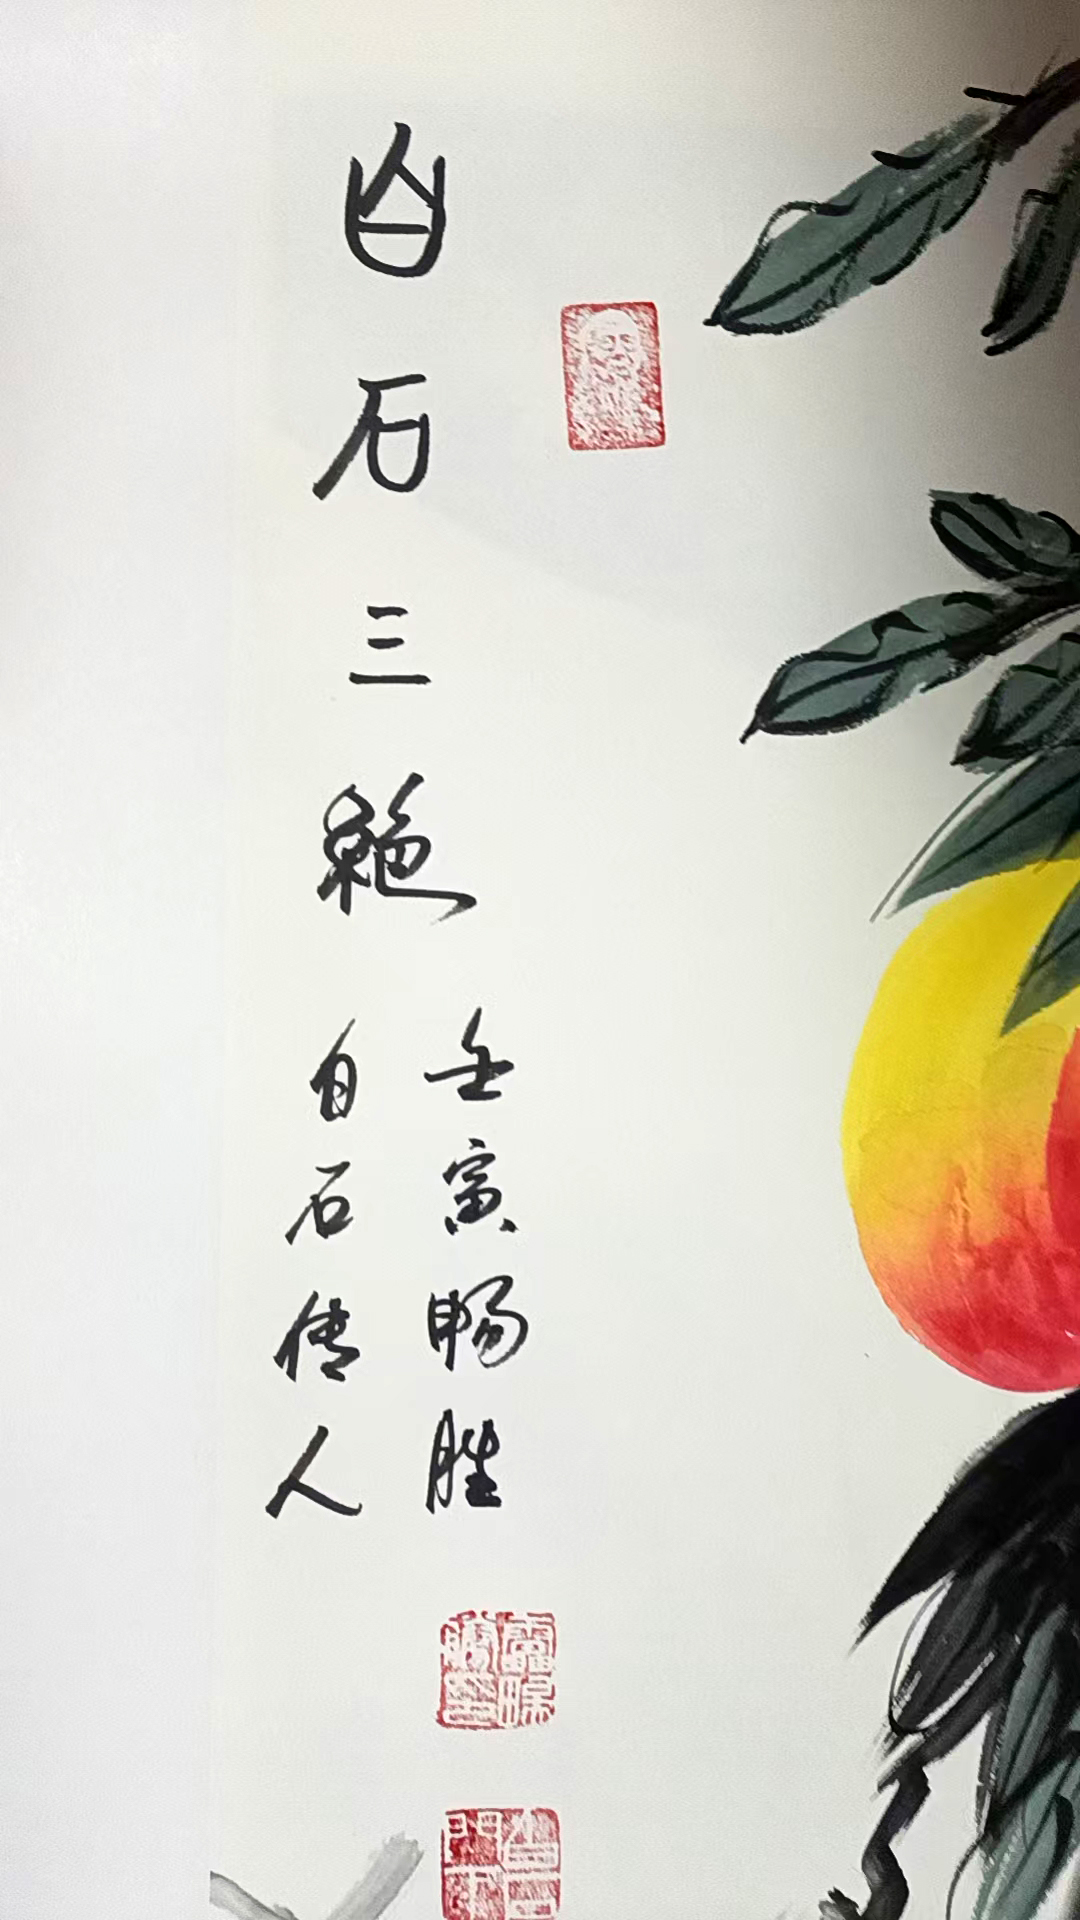 白石三絶
壬寅畅胜
白石传人